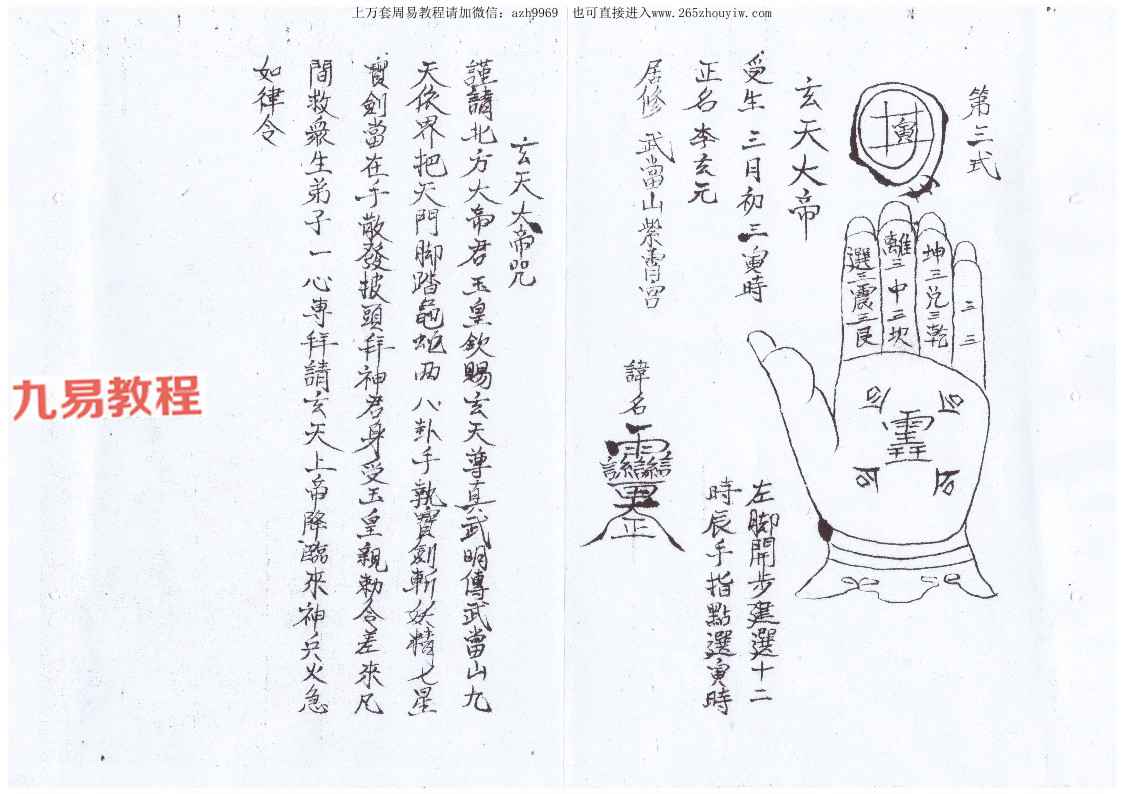 上万套周易教程请加微信：azh9969 也可直接进入www.265zhouyiw.com
第三式
寅
玄天大帝
受生 三月初三寅時
正名 李玄元
居修 武當山紫霄宮
諱名
選三震三艮
離三中三坎
坤三兌三乾
三三
左脚開步建選十二
時辰手指點選寅時
玄天大帝咒
謹請北方大帝君玉皇欽賜玄天尊真武明傳武當山九
天依界把天門脚踏龜蛇两八卦手執寶劍斬妖精七星
寶劍當在手散發披頭拜神君身受玉皇親勅令差來凡
間救衆生弟子一心專拜請玄天上帝降臨來神兵火急
如律令
九易教程